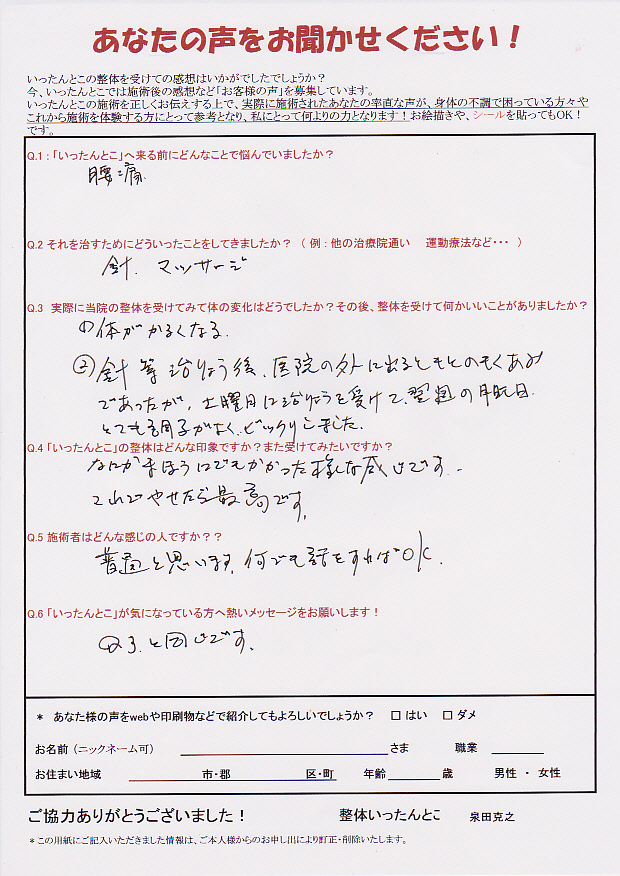 あなたの声をお聞かせください！
いったんとこの整体を受けての感想はいかがでしたでしょうか？
今、いったんとこでは施術後の感想など「お客様の声」を募集しています。
いったんとこの施術を正しくお伝えする上で、実際に施術されたあなたの率直な声が、身体の不調で困っている方々や
これから施術を体験する方にとって参考となり、私にとって何よりの力となります！お絵描きや、シールを貼ってもOK！
です。
Q.1：「いったんとこ」へ来る前にどんなことで悩んでいましたか？
腰痛
Q.2 それを治すためにどういったことをしてきましたか？ （ 例：他の治療院通い 運動療法など・・・ ）
針. マッサージ
Q.3 実際に当院の整体を受けてみて体の変化はどうでしたか？その後、整体を受けて何かいいことがありましたか？
①体がかるくなる.
②針等治りょう後、医院の外に出るともとのもくあみ
であったが、土曜日に治りょうを受けて、翌週の月曜日
とても調子がよく、ビックリしました.
Q.4「いったんとこ」の整体はどんな印象ですか？また受けてみたいですか？
なにかまほうにでもかかった様な感じです.
これでやせたら最高です.
Q.5 施術者はどんな感じの人ですか？？
普通と思います. 何でも話をすればOK.
Q.6「いったんとこ」が気になっている方へ熱いメッセージをお願いします！
Q3.と同じです.
＊ あなた様の声をwebや印刷物などで紹介してもよろしいでしょうか？ □ はい □ ダメ
お名前（ニックネーム可） さま 職業
お住まい地域 市・郡 区・町 年齢 歳 男性 ・ 女性
ご協力ありがとうございました！ 整体いったんとこ 泉田克之
＊この用紙にご記入いただきました情報は、ご本人様からのお申し出により訂正・削除いたします。